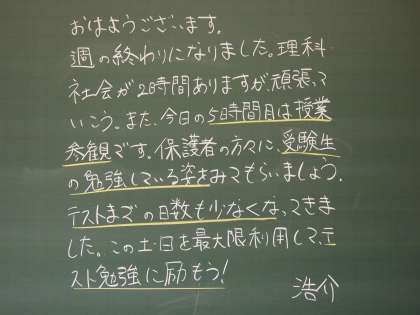 おはようございます。
週の終わりになりました。理科
社会が2時間ありますが、頑張って
いこう。また、今日の5時間目は授業
参観です。保護者の方々に、受験生
の勉強している姿をみてもらいましょう。
テストまでの日数も少なくなってきま
した。この土・日を最大限利用して、テ
スト勉強に励もう!
浩介